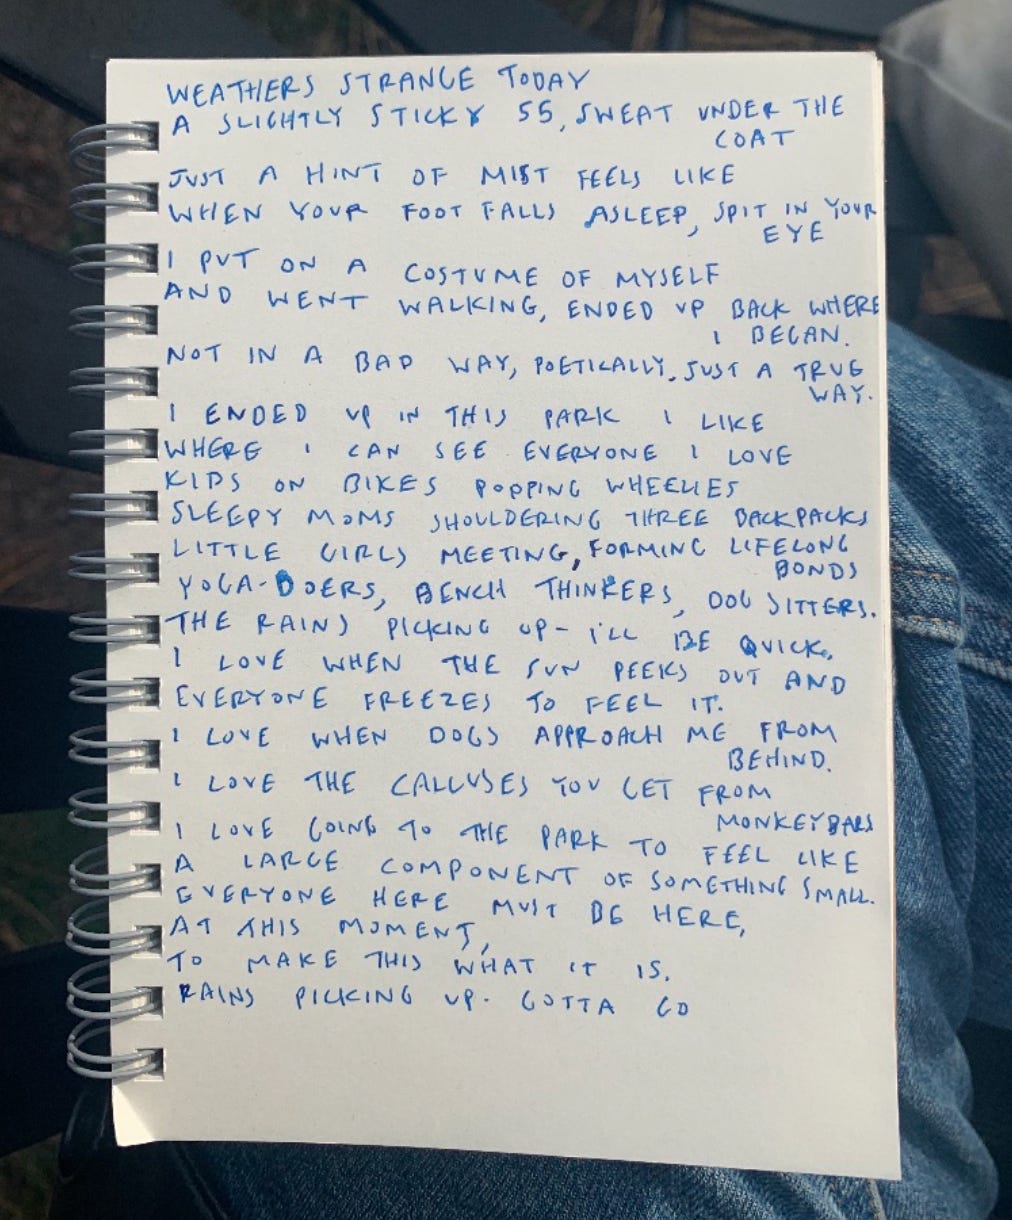 WEATHERS STRANGE TODAY
A SLIGHTLY STICKY 55, SWEAT UNDER THE
COAT
JUST A HINT OF MIST FEELS LIKE
WHEN YOUR FOOT FALLS ASLEEP, SPIT IN YOUR
EYE
I PUT ON A COSTUME OF MYSELF
AND WENT WALKING, ENDED UP BACK WHERE
I BEGAN.
NOT IN A BAD WAY, POETICALLY. JUST A TRUE
WAY.
I ENDED UP IN THIS PARK I LIKE
WHERE I CAN SEE EVERYONE I LOVE
KIDS ON BIKES POPPING WHEELIES
SLEEPY MOMS SHOULDERING THREE BACKPACKS
LITTLE GIRLS MEETING, FORMING LIFELONG
BONDS
YOGA-DOERS, BENCH THINKERS, DOG SITTERS.
THE RAINS PICKING UP - I'LL BE QUICK.
I LOVE WHEN THE SUN PEEKS OUT AND
EVERYONE FREEZES TO FEEL IT.
I LOVE WHEN DOGS APPROACH ME FROM
BEHIND.
I LOVE THE CALLUSES YOU GET FROM
MONKEYBARS
I LOVE GOING TO THE PARK TO FEEL LIKE
A LARGE COMPONENT OF SOMETHING SMALL.
EVERYONE HERE MUST BE HERE,
AT THIS MOMENT,
TO MAKE THIS WHAT IT IS.
RAINS PICKING UP. GOTTA GO